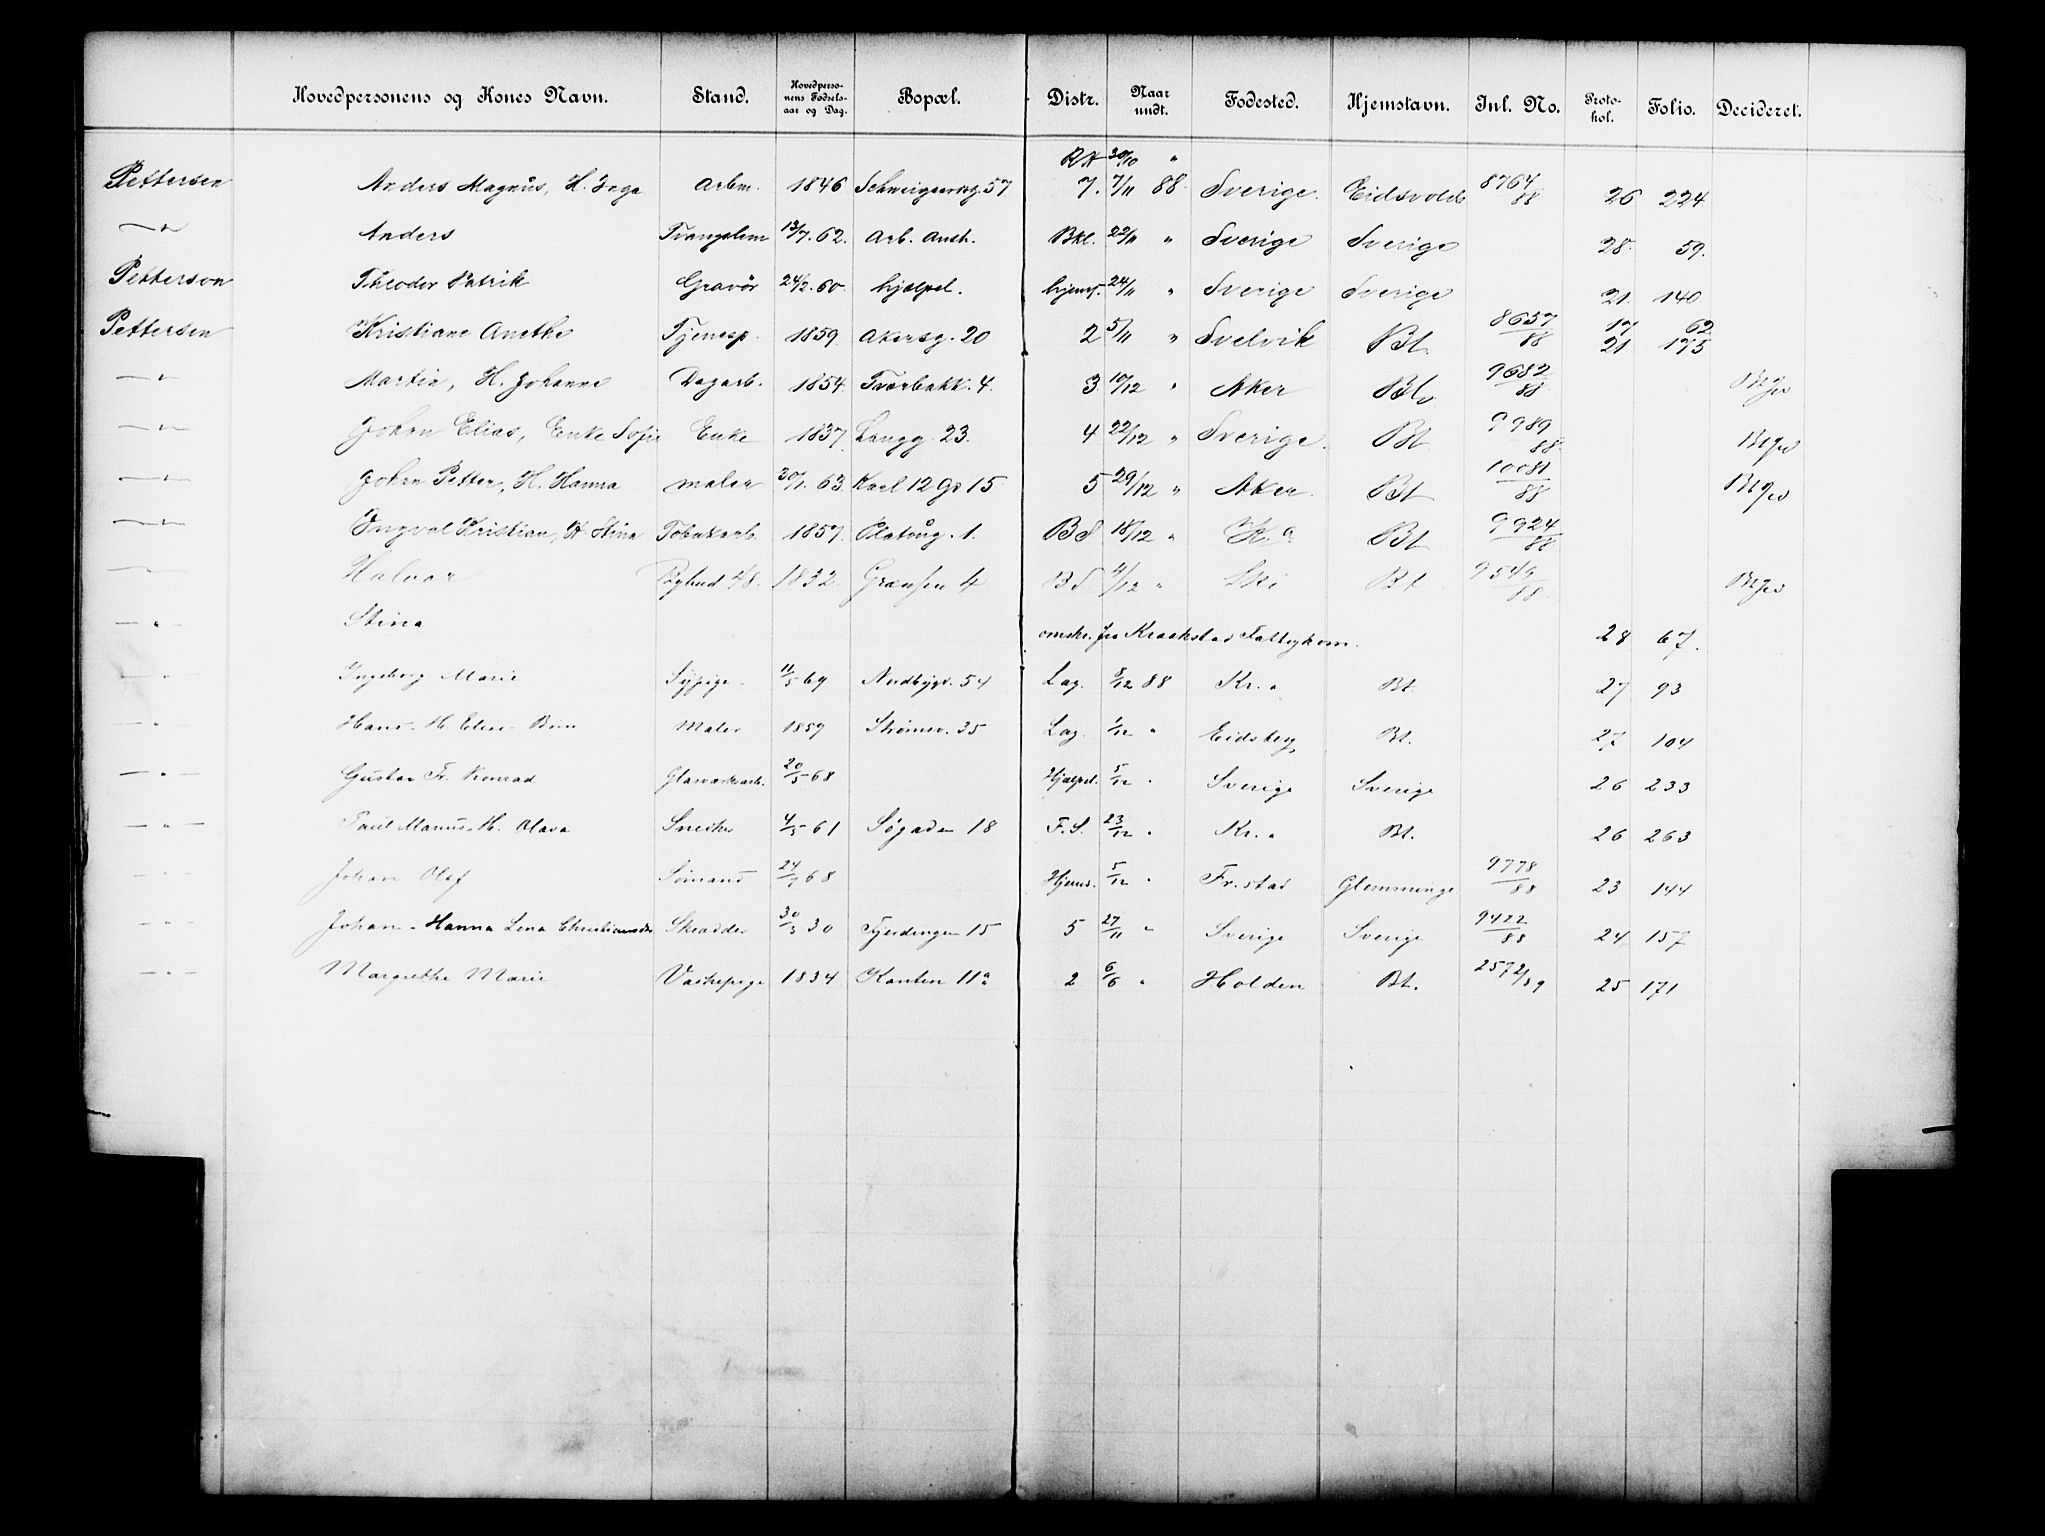 Hovedpersonens og Kones Navn. Stand. Hovedpersonens Fødselsaar og Dag. Bopæl. Distr. Naar undt. Fødested. Hjemstavn. Inl. No. Protokol. Folio. Decideret.
RA 20/10 "
Pettersen Anders Magnus, H. Inga Arbm. 1846 Schweigaardsg. 57 7. 7/11 88. Sverige. Eidsvold 8764/88 26 224
—"— Anders Tvangslem 13/7. 62. Arb. Anst. Bkl. 22/11 " Sverige Sverige 28. 59.
Petterson Theodor Patrik Gravör 24/2. 60. hjælpel. hjemf. 24/11 " Sverige Sverige 21. 140
Pettersen Kristiane Anethe Tjenesp. 1859. Akersg. 20 2 5/11 " Svelvik Bt. 8657/88 17 62
21 175
—"— Martin, H. Johanne Dagarb. 1854. Tværbakk. 4. 3 10/12 " Aker Bt. 9682/88
—"— Johan Elias, Enke Sofie Enke 1837. Langg. 23. 4 22/12 " Sverige. Bt. 9989/88.
—"— Johan Petter, H. Hanna maler 30/1. 63. Karl 12 Gd 15 5 29/12 " Aker Bt 10081/88
—"— Ingval Kristian, H Stina Tobakarb. 1857. Platoug. 1. BS 18/12 " K.a Bt 9924/88
—"— Halvor 1832. Grænsen 4 BS 4/12 " Ski Bt 9549/88.
—"— Stina omskr. fra Kraakstad Fattigkom. 28 67.
—"— Ingeborg Marie Sypige 11/5 69 Nordbygt. 54 Lag. 8/12 88 Kr.a Bt. 27 93
—"— Hans H. Elen Maler 1859 Strømsv. 35 Lag. 1/12 " Eidsberg Bt. 27 104
—"— Gustav Fr. Konrad Glasværksarb. 20/5 68 Hjælpel. 5/12 " Sverige Sverige 26 233
—"— Paul Marius H. Olava Snedker 4/5 61 Søgaden 18 F.S. 23/12 " Kr.a Bt. 26 263
—"— Johan Olaf Sømand 24/9 68 Hjems. 5/12 " Fr.stad Glemminge 9778/88 23 144
—"— Johan - Hanna Lena Christiansdr Skrædder 30/3 30 Fjerdingen 15 5 27/11 " Sverige Sverige 9422/88 24 157
—"— Margrethe Marie Vaskepige 1834 Kanten 11a 2 6/6 " Holden Bt. 2572/89 25 171